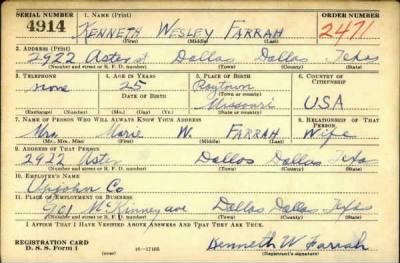 SERIAL NUMBER 1. NAME (Print) ORDER NUMBER
4914 KENNETH WESLEY FARRAH 2471
(First) (Middle) (Last)
2. ADDRESS (Print)
2922 Aster st Dallas Dallas Texas
(Number and street or R. F. D. number) (Town) (County) (State)
3. TELEPHONE 4. AGE IN YEARS 5. PLACE OF BIRTH 6. COUNTRY OF CITIZENSHIP
none 25 Raytown
DATE OF BIRTH (Town or county)
Missouri USA
(Exchange) (Number) (Mo.) (Day) (Yr.) (State or country)
7. NAME OF PERSON WHO WILL ALWAYS KNOW YOUR ADDRESS 8. RELATIONSHIP OF THAT PERSON
Mrs. Marie W. FARRAH Wife
(Mr., Mrs., Miss) (First) (Middle) (Last)
9. ADDRESS OF THAT PERSON
2922 Aster Dallas Dallas Texas
(Number and street or R. F. D. number) (Town) (County) (State)
10. EMPLOYER'S NAME
Upjohn Co
11. PLACE OF EMPLOYMENT OR BUSINESS
901 McKinney ave Dallas Dallas Texas
(Number and street or R. F. D. number) (Town) (County) (State)
I AFFIRM THAT I HAVE VERIFIED ABOVE ANSWERS AND THAT THEY ARE TRUE.
REGISTRATION CARD
D. S. S. Form 1 (over) Kenneth W Farrah
(Registrant's signature)